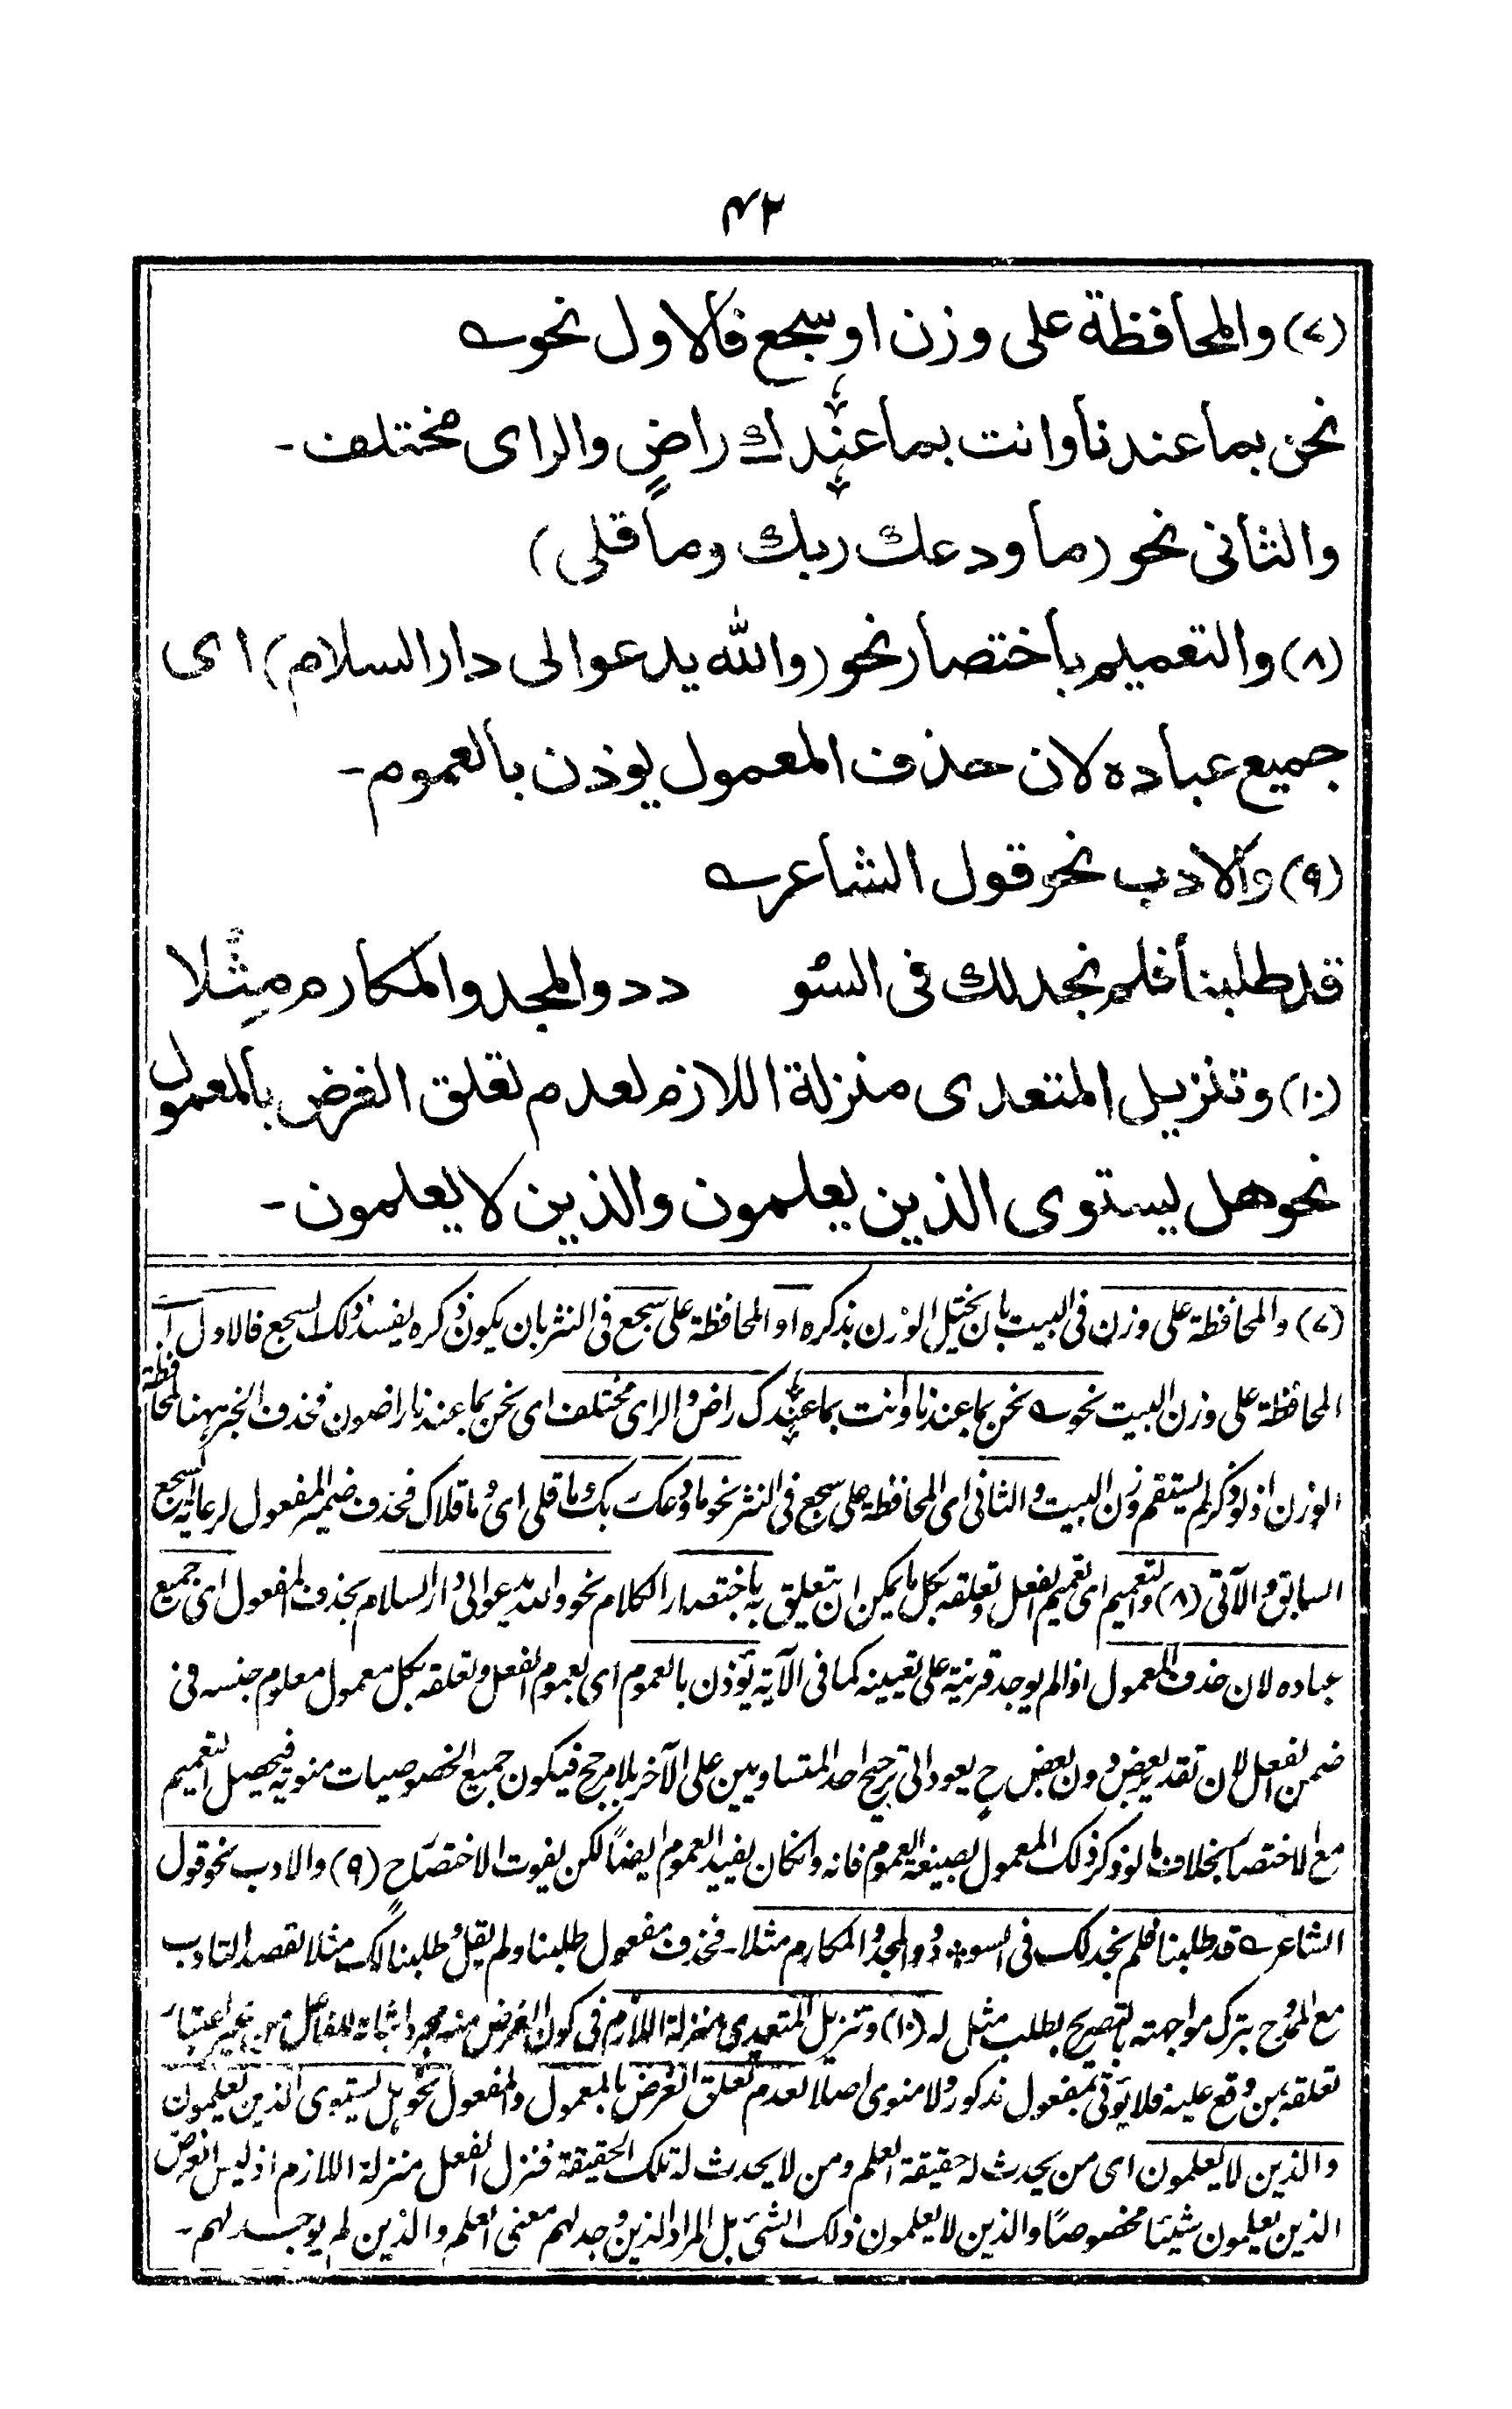 ۴۲
(۷) والمحافظة على وزن او سجع فالاول نحو ؎
نحن بما عندنا وانت بما عندك راضٍ والراى مختلف۔
والثانى نحو (ما ودعك ربك وما قلى)
(۸) والتعميم باختصار نحو (والله يدعوا لى دار السلام) اى
جميع عباده لان حذف المعمول يوذن بالعموم۔
(۹) والادب نحو قول الشاعر ؎
قد طلبنا فلم نجد لك فى السُّو دد والمجد والمكارم مِثْلا
(۱۰) وتنزيل المتعدى منزلة اللازم لعدم تعلق الغرض بالمعمول
نحو هل يستوى الذين يعلمون والذين لا يعلمون۔
(۷) والمحافظة على وزن فى البيت بان يختل الوزن بذكره او المحافظة على سجع فى النثر بان يكون ذكره يفسد ذلك السجع فالاول اى
المحافظة على وزن البيت نحو ؎ نحن بما عندنا وانت بما عندك راض والراى مختلف اى نحن بما عندنا راضون فحذف الخبر ههنا لمحافظة
الوزن اذ لو ذكر لم يستقم وزن البيت والثانى اى المحافظة على سجع فى النثر نحو ما ودعك ربك وما قلى اى وما قلاك فحذف ضمير المفعول لرعاية السجع
السابق والآتى (۸) والتعميم اى تعميم الفعل وتعلقه بكل ما يمكن ان يتعلق به باختصار الكلام نحو والله يدعو الى دار السلام بحذف المفعول اى جميع
عباده لان حذف المعمول اذا لم يوجد قرينة على تعيينه كما فى الآية يؤذن بالعموم اى بعموم الفعل وتعلقه بكل معمول معلوم جنسه فى
ضمن الفعل لان تقدير بعض دون بعض ح يعود الى ترجيح احد المتساويين على الآخر بلا مرجح فيكون جميع الخصوصيات منوية فيحصل التعميم
مع الاختصار بخلاف ما لو ذكر ذلك المعمول بصيغة العموم فانه وان كان يفيد العموم ايضًا لكن يفوت الاختصار ح (۹) والادب نحو قول
الشاعر ؎ قد طلبنا فلم نجد لك فى السو ٭ دد والمجد والمكارم مثلا۔ فحذف مفعول طلبنا ولم يقل طلبنا لك مثلا لقصد التادب
مع الممدوح بترك مواجهته بالتصريح بطلب مثل له (۱۰) وتنزيل المتعدى منزلة اللازم فى كون الغرض منه مجرد اثباته للفاعل من غير اعتبار
تعلقه بمن وقع عليه فلا يؤتى بمفعول مذكور ولا منوى اصلا لعدم تعلق الغرض بالمعمول والمفعول نحو هل يستوى الذين يعلمون
والذين لا يعلمون اى من يحدث له حقيقة العلم ومن لا يحدث له تلك الحقيقة فنزل الفعل منزلة اللازم اذ ليس الغرض
الذين يعلمون شيئا مخصوصًا والذين لا يعلمون ذلك الشئ بل المراد الذين وجد لهم معنى العلم والذين لم يوجد لهم۔